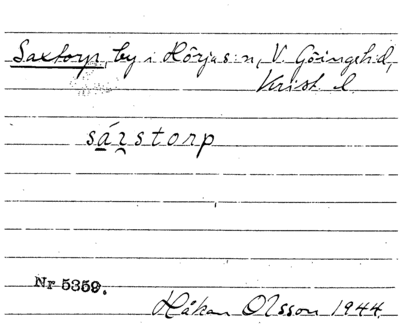 Saxtorp, by i Hörjas:n, V. Göingeh:d,
Krist. l
sárstorp
Nr 5359.
Håkan Olsson 1944.